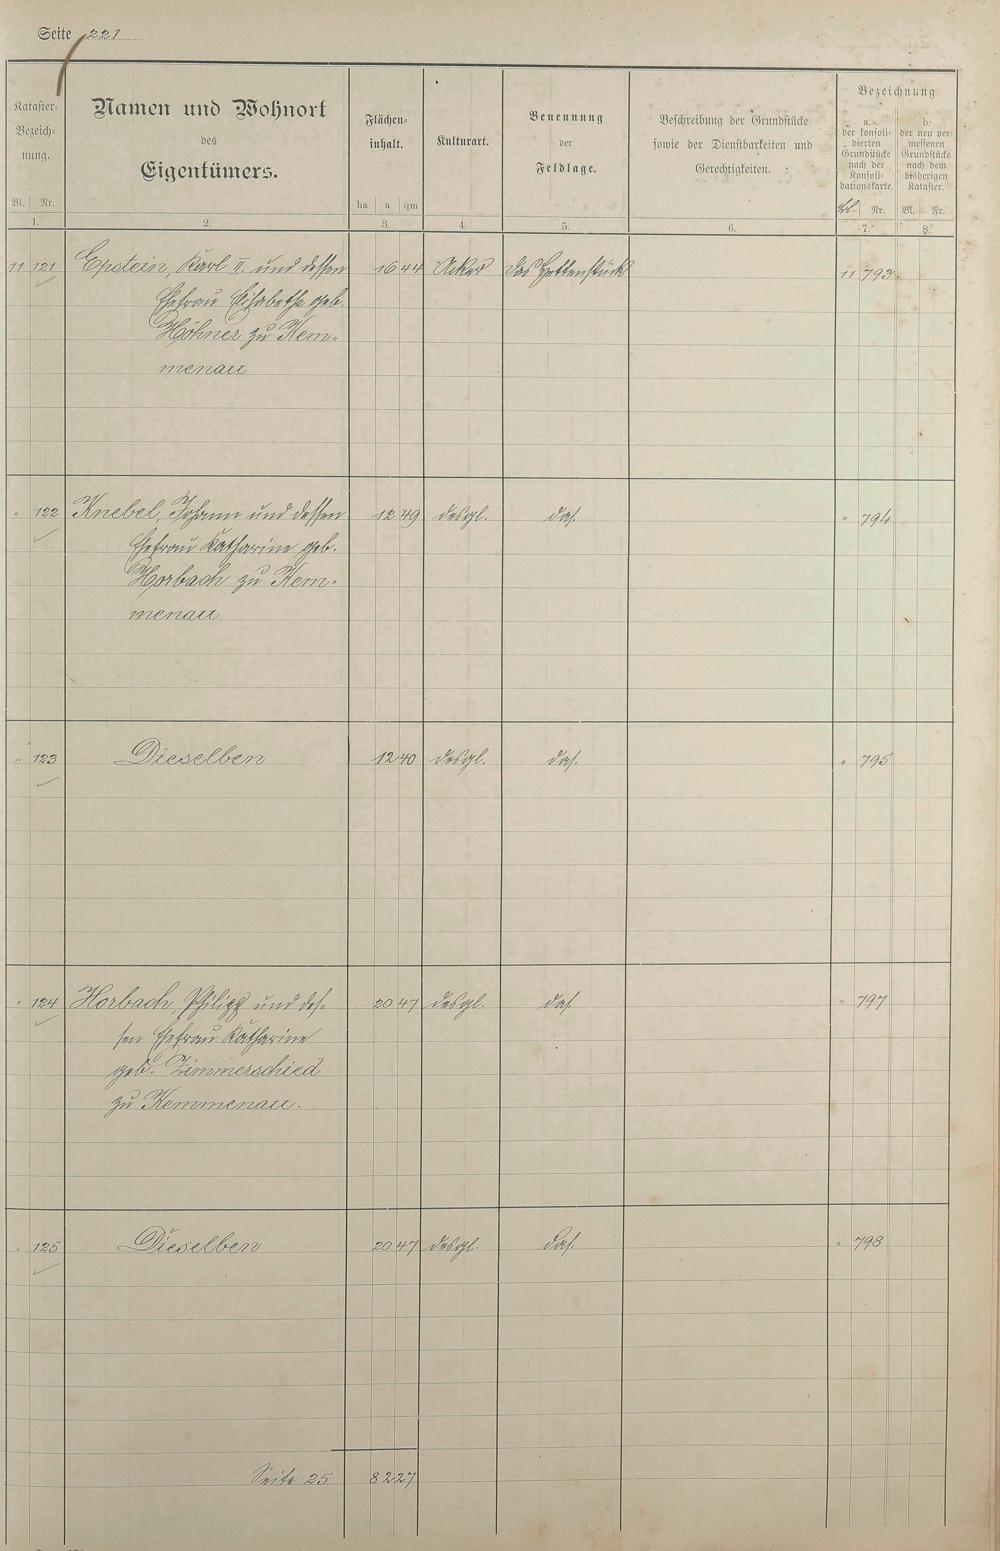 Seite 221
Kataster-Bezeichnung. Namen und Wohnort des Eigentümers. Flächeninhalt. Kulturart. Benennung der Feldlage. Beschreibung der Grundstücke sowie der Dienstbarkeiten und Gerechtigkeiten. Bezeichnung
a. der konsolidierten Grundstücke nach der Konsolidationskarte. b. der neu vermessenen Grundstücke nach dem bisherigen Kataster.
Bl. Nr. ha a qm Bl. Nr. Bl. Nr.
1. 2. 3. 4. 5. 6. 7. 8.
11 121 Epstein, Karl II. und dessen 16 44 Acker Das 11 793
Ehefrau Elisabethe geb.
Höhner zu Kem-
menau
" 122 Knebel, Johann und dessen 12 49 desgl. das. " 794
Ehefrau Katharine geb.
Horbach zu Kem-
menau
" 123 Dieselben 12 40 desgl. das. " 795
" 124 Horbach, Philipp und des- 20 47 desgl. das. " 797
sen Ehefrau Katharine
geb. Zimmerschied
zu Kemmenau.
" 125 Dieselben 20 47 desgl. das. " 798
Seite 25 82 27